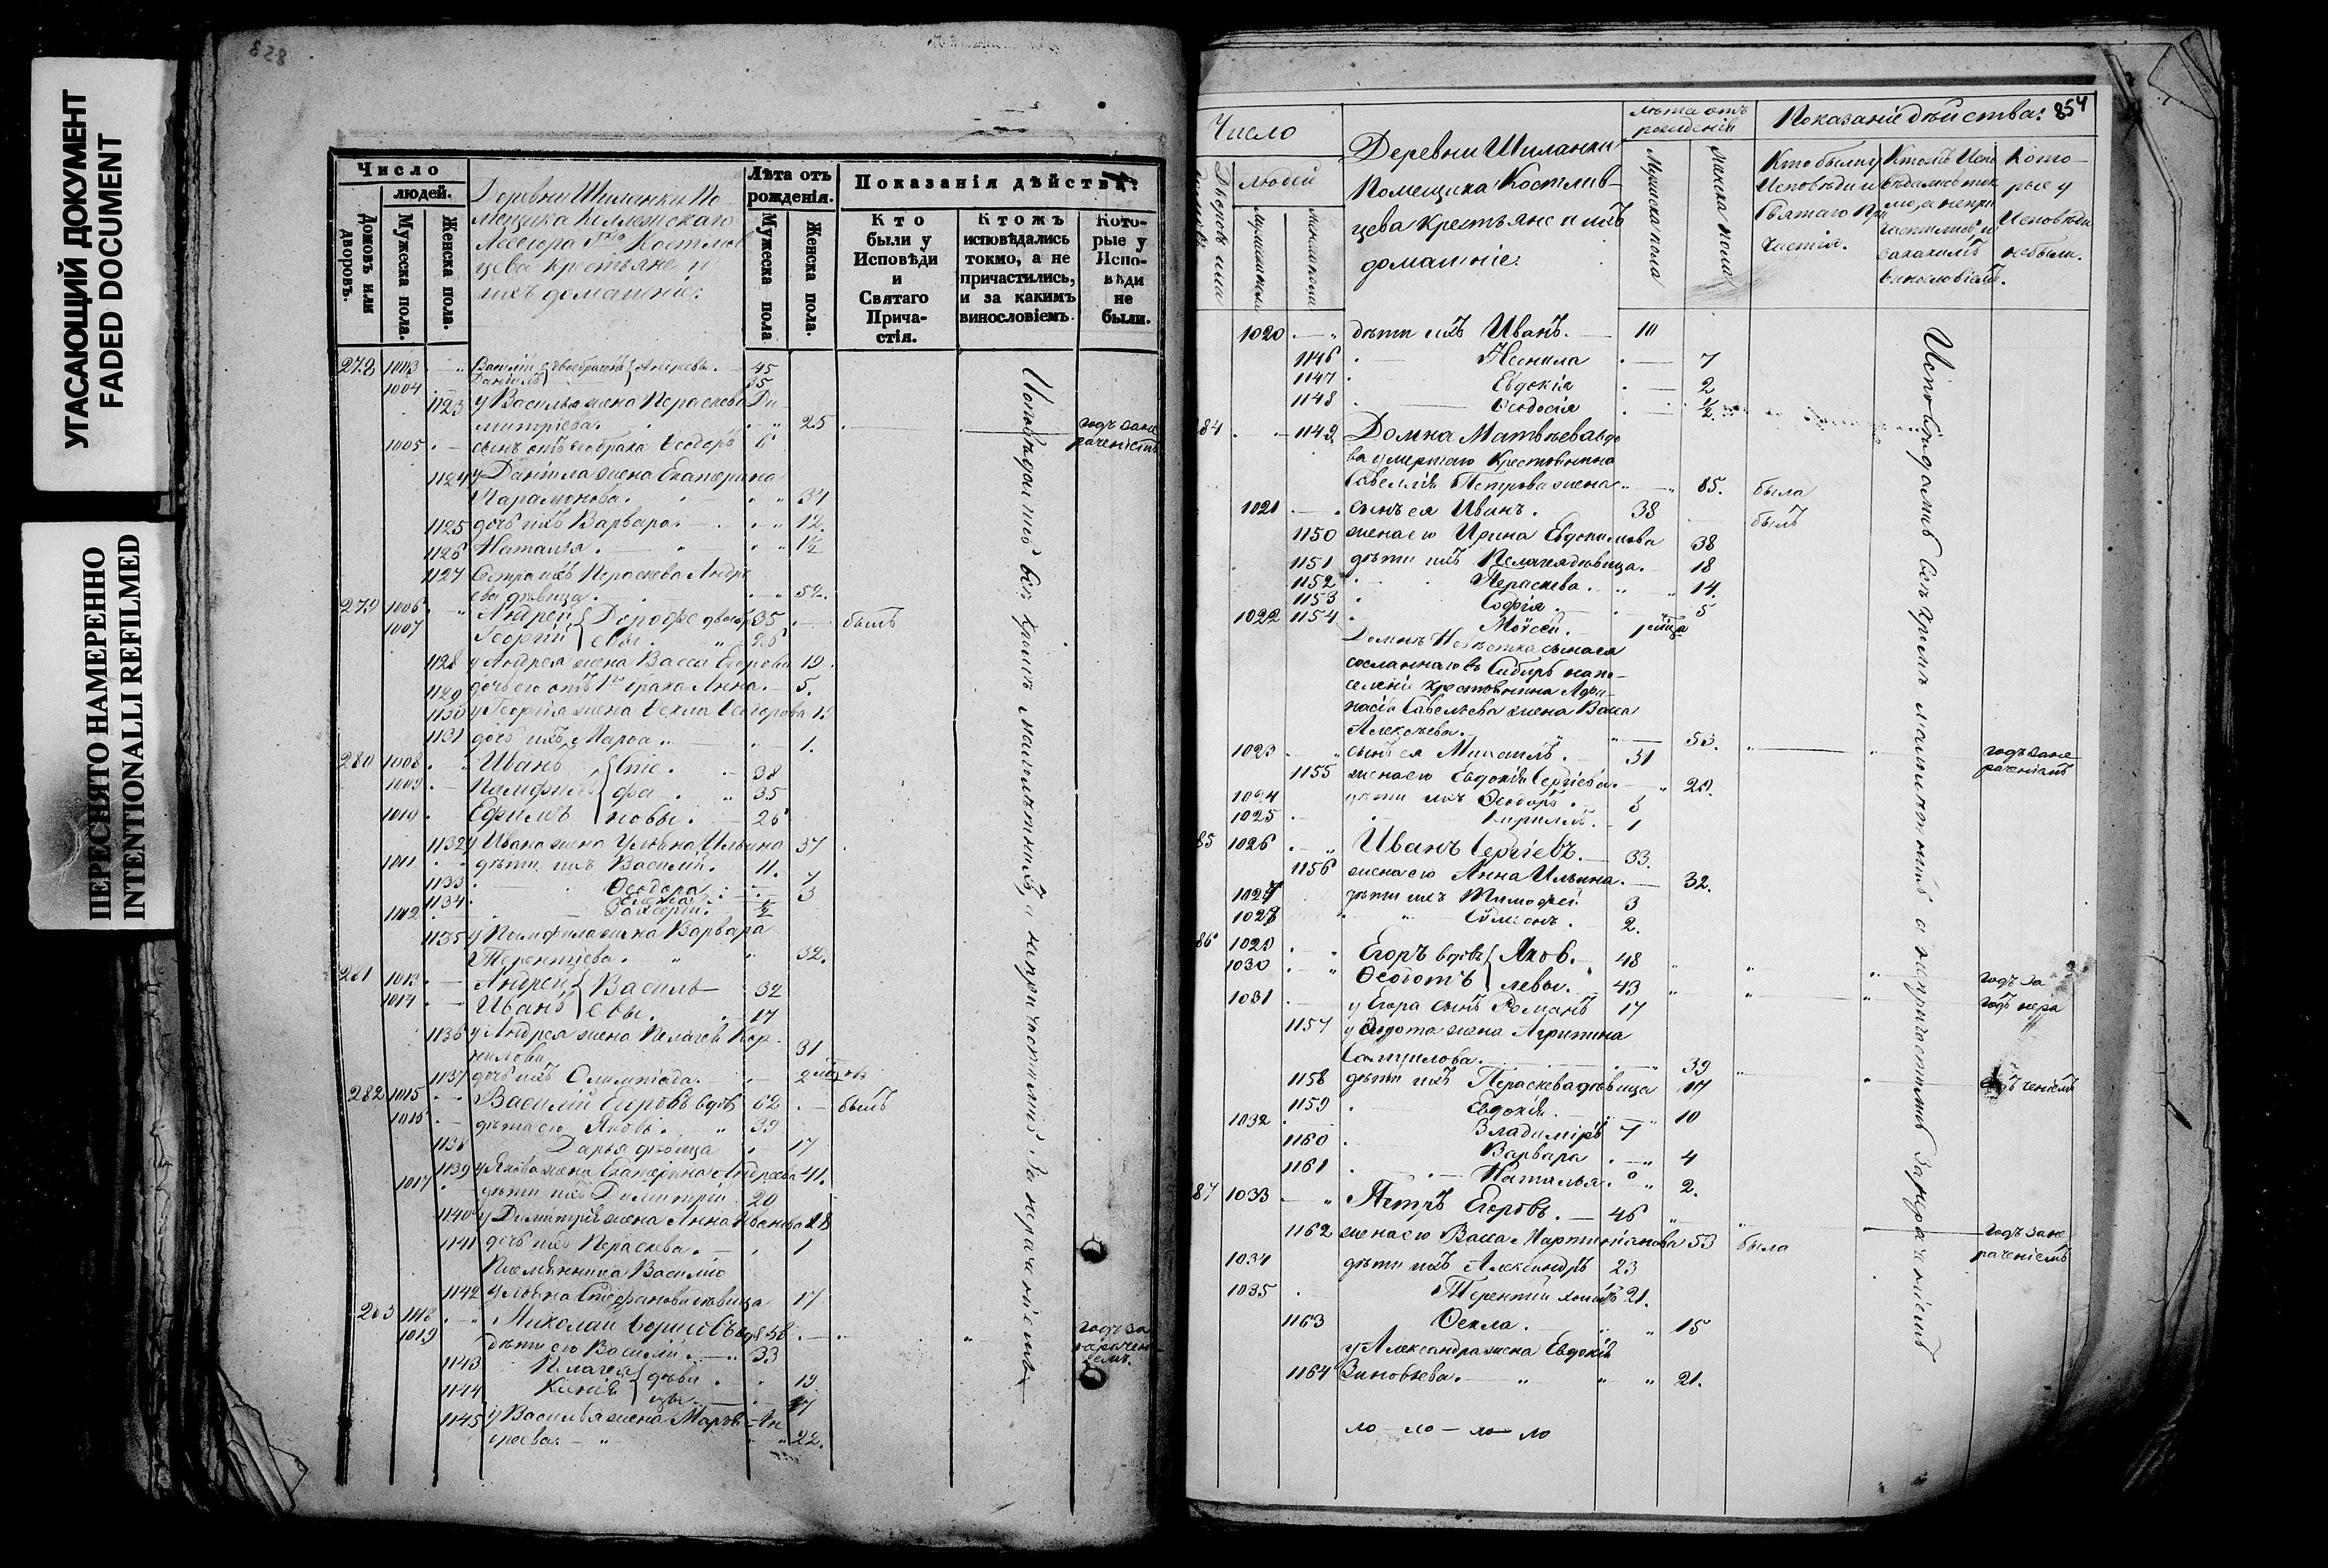 УГАСАЮЩИЙ ДОКУМЕНТ
FADED DOCUMENT
ПЕРЕСНЯТО НАМЕРЕННО
INTENTIONALLI REFILMED
Число
людей.
Домовъ или дворовъ.
Мужеска пола.
Женска пола.
Деревни Шиланки По-
мещика Коллежскаго
Ассесора Костлив
цева крестьяне и
ихъ домашніе:
Лѣта отъ рожденія.
Мужеска пола
Женска пола.
Показанія дѣйства:
Кто были у Исповѣди и Святаго Прича-стія.
Ктожъ исповѣдались токмо, а не причастились, и за какимъ винословіемъ.
Кото-рые у Испо-вѣди не были.
1003 Василій Андреевы. 45
1004 Даніилъ 35
1123 у Василья жена Параскева Ди-
митріева. 25
1005 сынъ отъ Ѳеодоръ 6
1124 у Даніила жена Екатерина
Парамонова. 31
1125 дочь ихъ Варвара. 12
1126 Наталья. 1½
1127 Сестра ихъ Параскева Андре
ева дѣвица. 52.
279 1006 Андрей Дорофе 35 былъ
1007 Георгій евы. 26
1128 у Андрея жена Васса Егорова 19
1129 дочь его отъ 1го брака Анна. 5.
1130 у Георгія жена Ѳекла
1131 дочь ихъ Марѳа 1.
280 1008 Иванъ Сте. 38
1009 Памфилъ фа 35
1010 Ефимъ новы. 26
1132 у Ивана жена Ульяна Ильина 37
1011 дѣти ихъ Василій. 11.
1133 Ѳеодора 7
1134 3
1012 ½
1135 у Памфила жена Варвара
Терентіева. 32.
281 1013 Андрей Василь 32
1014 Иванъ евы. 17
1136 у Андрея жена Пелагея Кор-
нилова 31
1137 дочь ихъ Олимпіада.
282 1015 Василій Егоровъ вдовъ 62 былъ
1016 дѣти его Яковъ. 39
1138 Дарья дѣвица 17
1139 у Якова жена Екатерина Андреева 41.
1017 дѣти ихъ Димитрій 20
1140 у Димитрія жена Анна Иванова 28
1141 дочь ихъ Параскева. 1
Племянница Василію
1142 Ульяна Стефанова дѣвица 17
1018 Николай Борисовъ вдовъ 58
1019 дѣти его Василій 33
1143 Пелагея дѣви 19
1144 Ксенія цы 17
1145 у Василья жена Марѳа Ан
дреева 22.
Исповѣдались всѣ кромѣ малолѣтнихъ, а не причастились за нераченіемъ
854
Число
Дворовъ или домовъ
людей
Деревни Шиланки
Помещика Костлив-
цева Крестьяне и ихъ
домашніе:
лѣта отъ рожденія
Мужеска пола
Женска пола
Показаніе дѣйства:
Кто были у Исповѣди и Святаго При частія.
Кото-рые у Исповѣди не были.
1020 дѣти ихъ Иванъ. 10
1146 Неонила 7
1147 Евдокія 2
1148 Ѳеодосія ½
84 1149 Домна Матвѣева вдо
ва умершаго Крестьянина
Савелія Петрова жена 85. была
1021 сынъ ея Иванъ. 38 былъ
1150 жена его Ирина Евдокимова 38
1151 дѣти ихъ Пелагея дѣвица. 18
1152 Параскева. 14.
1153 Софія. 5
1022 1154 Моѵсей.
Домнѣ Невѣстка сына ея
сосланнаго въ Сибирь на по-
селеніе крестьянина Афа-
насія Савельева жена Васса
Алексѣева. 53.
1023 сынъ ея Михаилъ. 31 годъ за не
раченіемъ
1155 жена его Евдокія Сергіева. 29.
1024 дѣти ихъ Ѳеодоръ. 3
1025 Кирилъ. 1
85 1026 Иванъ Сергіевъ. 33.
1156 жена его Анна Ильина. 32.
1027 дѣти ихъ Тимофей 3
1028 Сѵмеонъ. 2.
86 1029 Егоръ вдовъ Яков. 48
1030 Ѳедотъ левы. 43
1031 у Егора сынъ Романъ 17
1157 у Ѳедота жена Агрипина
39
1158 дѣти ихъ Параскева дѣвица 17
1159 Евдокія. 10
1032 Владиміръ 7
1160 Варвара 4
1161 Наталья. 2.
87 1033 Петръ Егоровъ. 46 годъ за не
раченіемъ
1162 жена его Васса Мартиніанова 53 была
1034 дѣти ихъ Александръ 23
1035 Терентій 21.
1163 Ѳекла. 15
у Александра жена Евдокія
1164 Зиновьева. 21.
Исповѣдались всѣ кромѣ малолѣтнихъ а не причастились за нераченіемъ